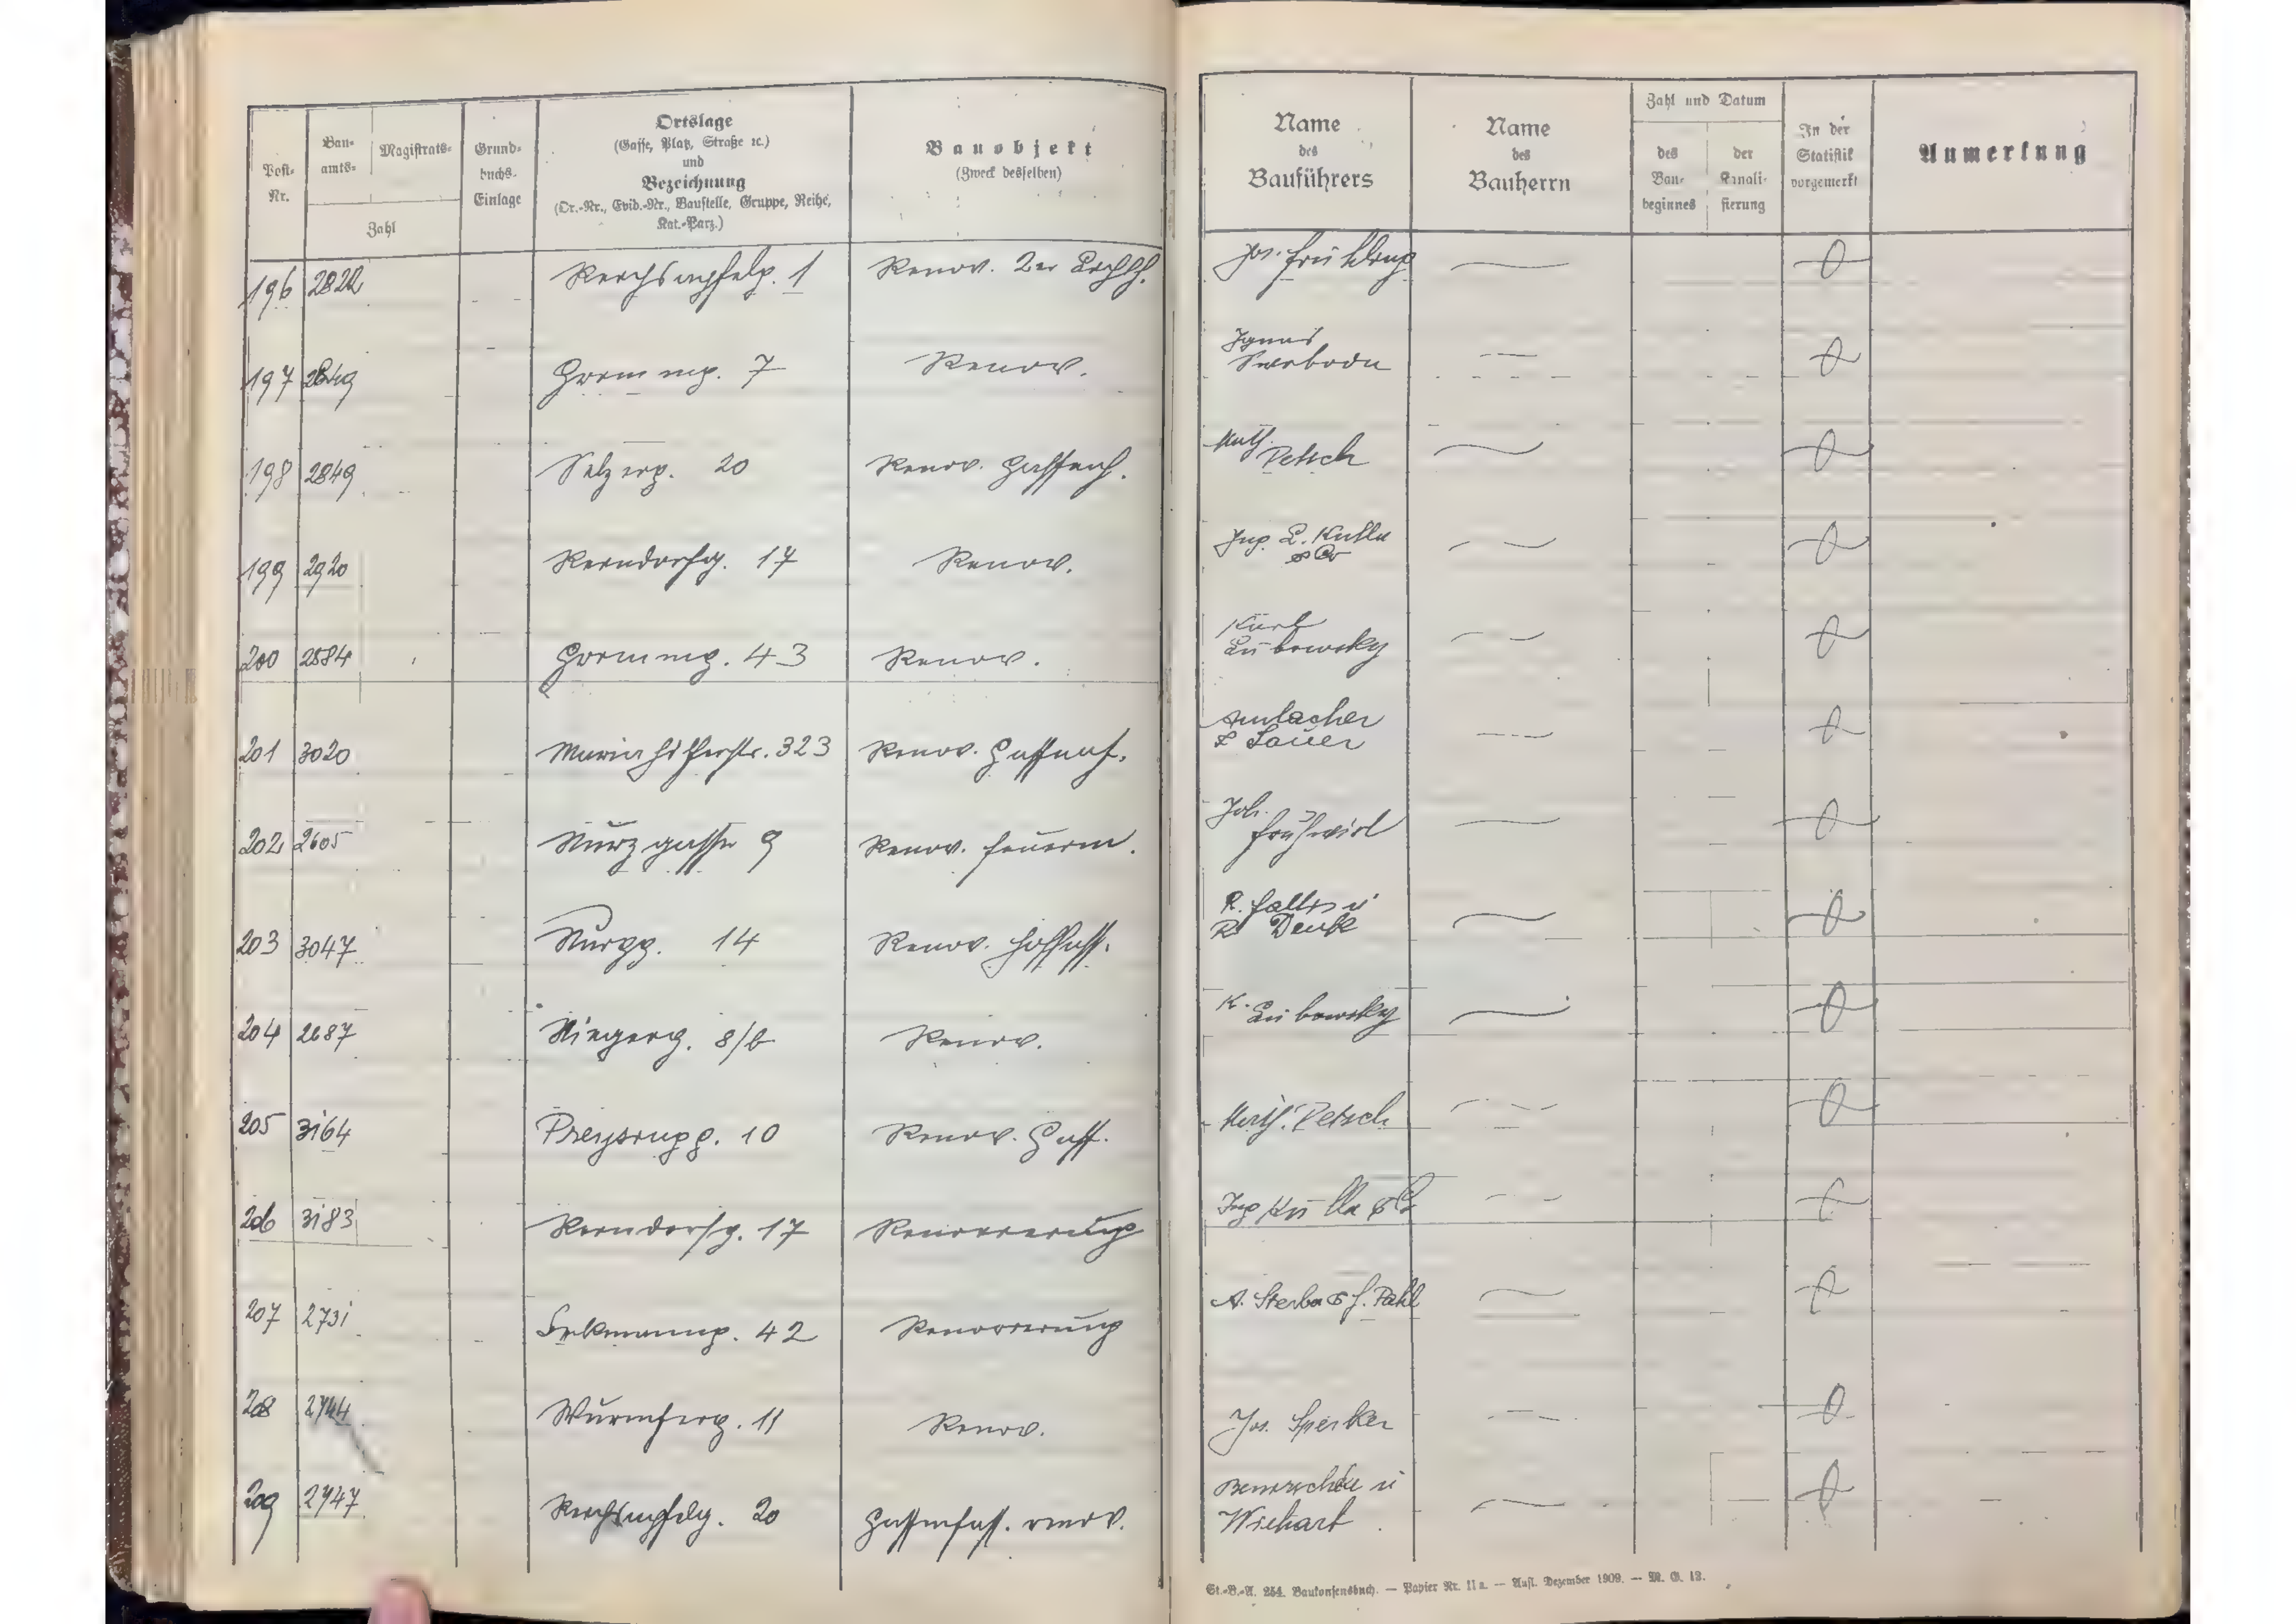 Post-Nr.
Bauamts-
Magistrats-
Zahl
Grundbuchs-Einlage
Ortslage
(Gasse, Platz, Straße ꝛc.)
und
Bezeichnung
(Or.-Nr., Evid.-Nr., Baustelle, Gruppe, Reihe,
Kat.-Parz.)
Bauobjekt
(Zweck desselben)
Name
des
Bauführers
Name
des
Bauherrn
Zahl und Datum
des
Bau-
beginnes
der
Kanali-
sierung
In der
Statistik
vorgemerkt
Anmerkung
196 2822 1 Renov. 2er Jos. Frühling
197 7 Renov. Ignaz Swoboda
198 2849 Selzerg. 20 Renov. Gassenf. Math. Petsch
199 2920 Kerndorfg. 17 Renov. Ing. L. Kutlla & Co
200 2584 43 Renov. Karl Lubowsky
201 3020 Mariahilferstr. 323 Renov. Gassenf. Amlacher & Sauer
202 2605 Würzgasse 9 Renov. Feuerm. Joh. Frühwirt
203 3047 Würzg. 14 Renov. Hoffass. R. u R. Denk
204 2687 8/b Renov. K. Lubowsky
205 3164 Preysingg. 10 Renov. Gass. Math. Petsch
206 3183 Kerndorfg. 17 Renovierung Ing
207 2731 Beckmanng. 42 Renovierung A. Sterba & F. Pahl
208 2744 Wurmserg. 11 Renov. Jos. Sperker
209 2747 20 Gassenfass. renov. u Wiehart
St.-B.-A. 254. Baukonsensbuch. — Papier Nr. IIa. — Aufl. Dezember 1909. — M. G. 13.